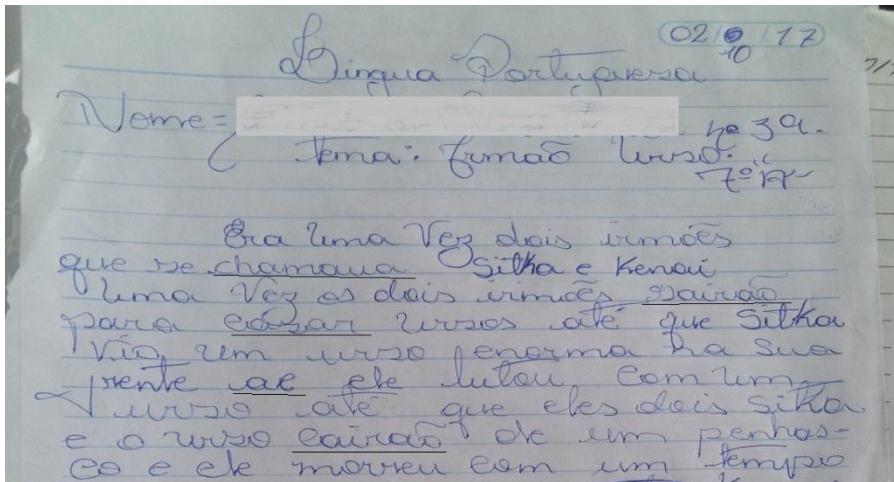 02/10/17
Língua Portuguesa
Nome=
nº 39.
Tema: Irmão urso.
7º "A"
Era uma Vez dois irmões
que se chamava Sitka e Kenai
Uma Vez os dois irmões sairão
para casar ursos até que Sitka
Vio um urso enorma na sua
frente ae ele lutou com um
urso até que eles dois Sitka
e o urso cairão de um penhas-
co e ele morreu com um tempo